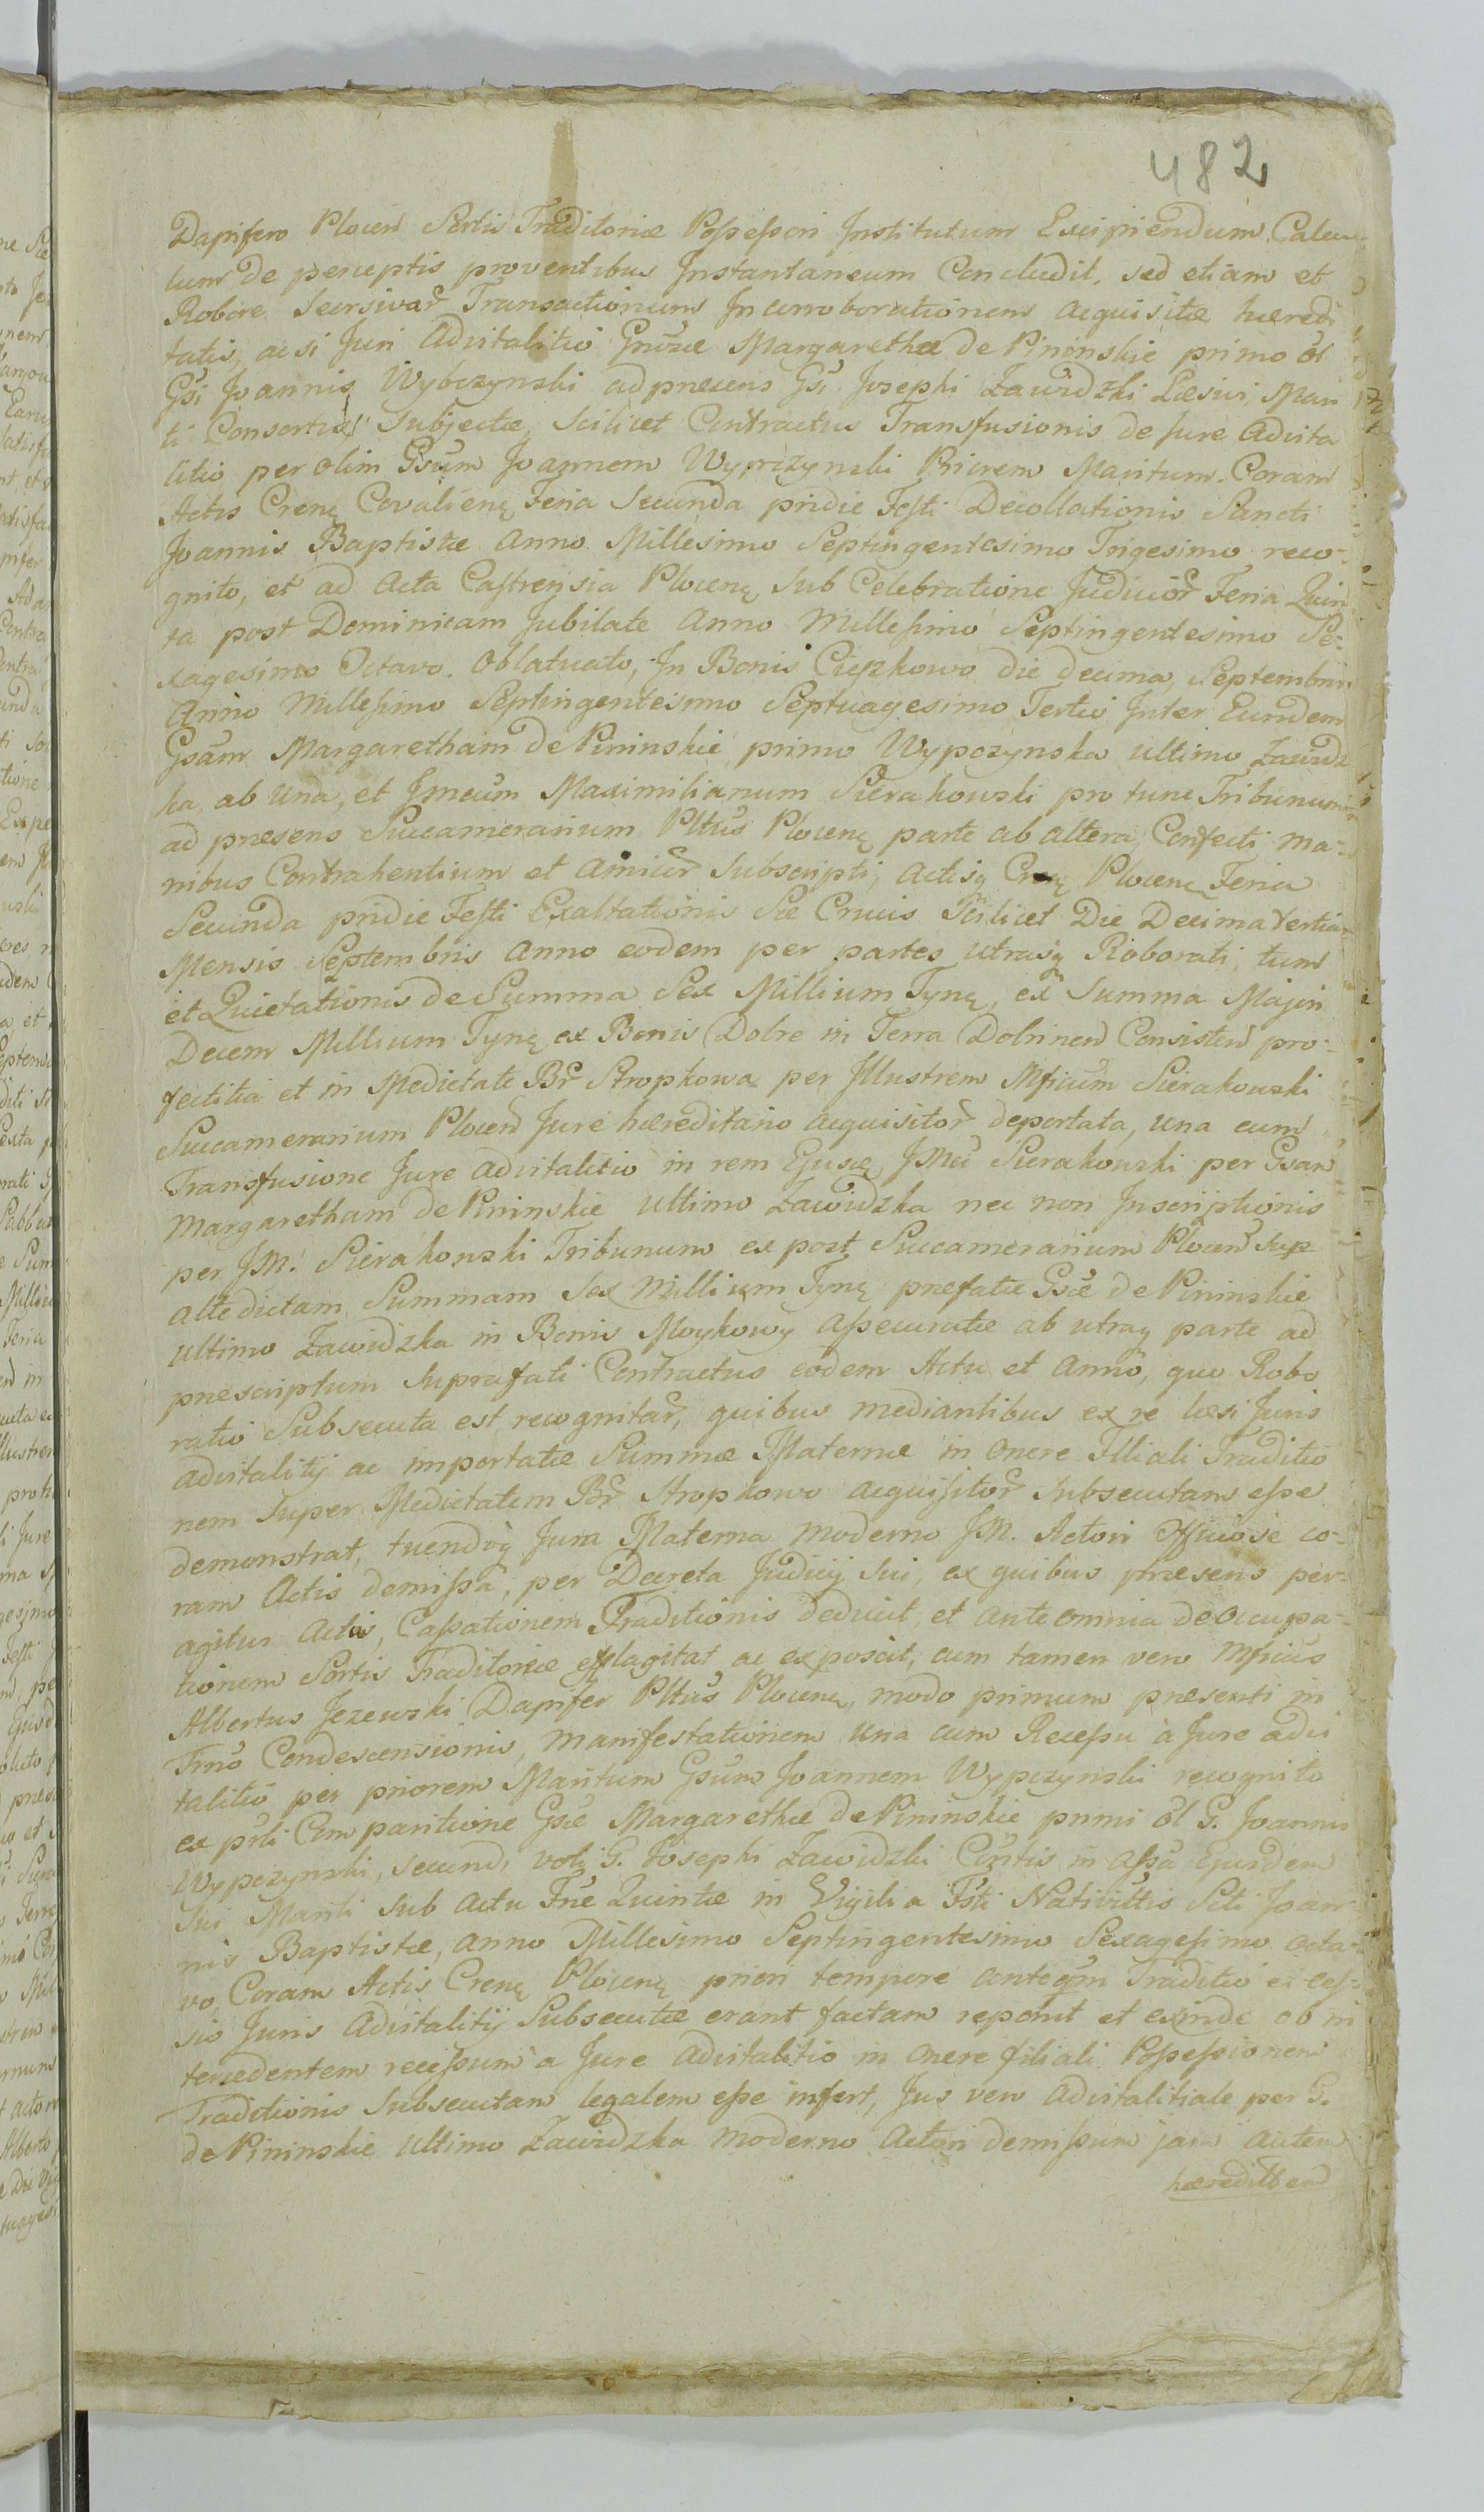 482
Dapifero Plocen Sortis Traditoriæ Poſseſsori Institutum Excipiendum Calcu
lum de perceptis proventibus Instantaneum Concludit, sed etiam et
Robore Transactionum In corroborationem acquisitæ hæredi
tatis, ac si Juri Advitalitio Margarethæ de Pininskie primo ol
Gsi Joannis Wybczynski ad præsens Gsi Josephi Zawidzki Mari
ti Consortis Subjectæ, Scilicet Contractus Transfusionis de Jure Advita
litio per olim Gsum Joannem Wyprzynski Priorem Maritum Coram
Actis Crenę Covalienę Feria Secunda pridie Feſti Decollationis Sancti
Joannis Baptistæ Anno Millesimo Septingentesimo Trigesimo reco-
gnito, et ad Acta Caſtrensia Plocenę sub Celebratione Judicior Feria Quin
ta post Dominicam Jubilate Anno Milleſimo Septingentesimo Se-
xagesimo Octavo Oblatuato, In Bonis Cieszkowo die decima Septembris
Anno Milleſimo Septingentesimo Septuagesimo Tertio Inter Eundem
Gsam Margaretham de Pininskie primo Wypczynska ultimo Zawidz
ka ab una, et Jmcum Maximilianum Sierakowski pro tunc Tribunum
ad præsens Succamerarium Pltus Plocenę parte ab altera Confecti ma-
nibus Contrahentium et Amicor Subscripti, Actisq Crenę Plocenę Feria
Secunda pridie Feſti Exaltationis Sæ Crucis Scilicet Die Decima Tertia
Mensis Septembris Anno eodem per partes utrasq Roborati, tum
et Quietationis de Summa Sex Millium Tynę, ex Summa Majori
Decem Millium Tynę ex Bonis Dobre in Terra Dobrinen Consisten pro-
fectitia et in Medietate Br Stropkowa per Illustrem Mficum Sierakowski
Succamerarium Plocen Jure hæreditario acquisitor deportata, una cum
Transfusione Jure Advitalitio in rem Ejusd JMci Sierakowski per Gsam
Margaretham de Pininskie ultimo Zawidzka nec non Inscriptionis
per JM. Sierakowski Tribunum ex post Succamerarium Plocen sup
alte dictam Summam Sex Millium Tynę præfatæ Gsæ de Pininskie
ultimo Zawidzka in Bonis Moykowy Aſsecuratæ ab utraq parte ad
præscriptum Suprafati Contractus eodem Actu et Anno, quo Robo
ratio Subsecuta est recognitar, quibus mediantibus ex re læsi Juris
Advitalitij ac importatæ Summæ Maternæ in onere Filiali Traditio
nem super Medietatem Br Stropkowo acquiſitor subsecutam eſse
demonstrat, tuendoq Jura Materna moderno JM. Actori Officiose co-
ram Actis demiſsa, per Decreta Judicij sui, ex quibus præsens per-
agitur Actis, Caſsationem Traditionis deducit, et ante omnia deoccupa-
tionem Sortis Traditoriæ efflagitat ac exposcit, cum tamen vero Mficus
Albertus Jezewski Dapifer Pltus Plocenę, modo primum præsenti in
Trno Condescensionis, Manifestationem una cum Receſsu a Jure Advi
talitio per priorem Maritum Gsum Joannem Wypczynski recognito
ex prli Comparitione Gsæ Margarethæ de Pininskie primi ol G. Joannis
Wypczynski, secundi voti G. Josephi Zawidzki Contis in Aſsa Ejusdem
Sui Mariti sub Actu Fræ Quintæ in Vigilia Fsti Nativittis Scti Joan-
nis Baptistæ, Anno Millesimo Septingentesimo Sexageſimo Octa-
vo Coram Actis Crenę Plocenę priori tempore anteqm Traditio ei ceſ-
sio Juris Advitalitij Subsecutæ erant factam reponit et exinde ob in
tercedentem receſsum a Jure Advitalitio in onere filiali Poſseſsionem
Traditionis Subsecutam legalem eſse infert, Jus vero Advitalitiale per G.
de Pininskie ultimo Zawidzka moderno Actori demiſsum jam autem